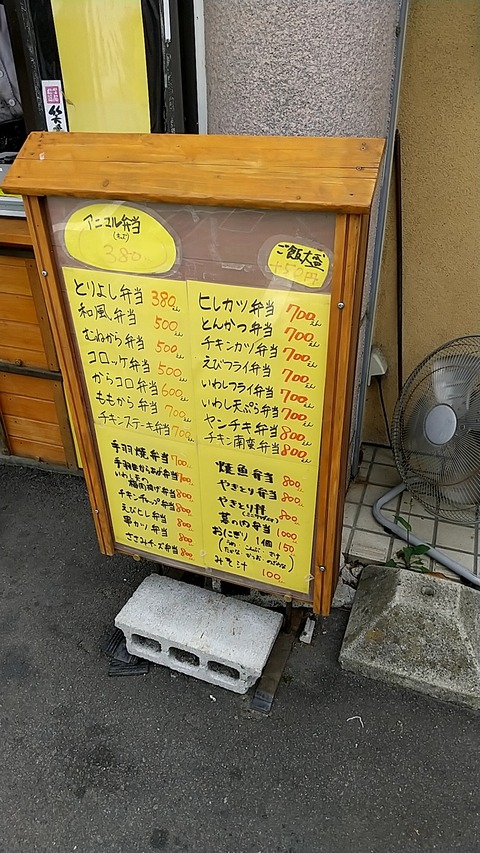 アニマル弁当
380
ご飯大盛
+50円
とりよし弁当 380
和風弁当 500
むねから弁当 500
コロッケ弁当 500
からコロ弁当 600
ももから弁当 700
チキンステーキ弁当 700
手羽焼弁当 700
手羽
弁当 700
いわし天の
弁当 800
チキンチップ弁当 800
えびとじ弁当 800
串かつ弁当 800
ささみチーズ弁当 800
ヒレカツ弁当 700
とんかつ弁当 700
チキンカツ弁当 700
えびフライ弁当 700
いわしフライ弁当 700
いわし天ぷら弁当 700
ヤンチキ弁当 800
チキン南蛮弁当 800
焼魚弁当 800
やきとり弁当 800
やきとり丼 800
幕の内弁当 1000
おにぎり 1個 150
(うめ こんぶ さけ
たかな かつお
みそ汁 100